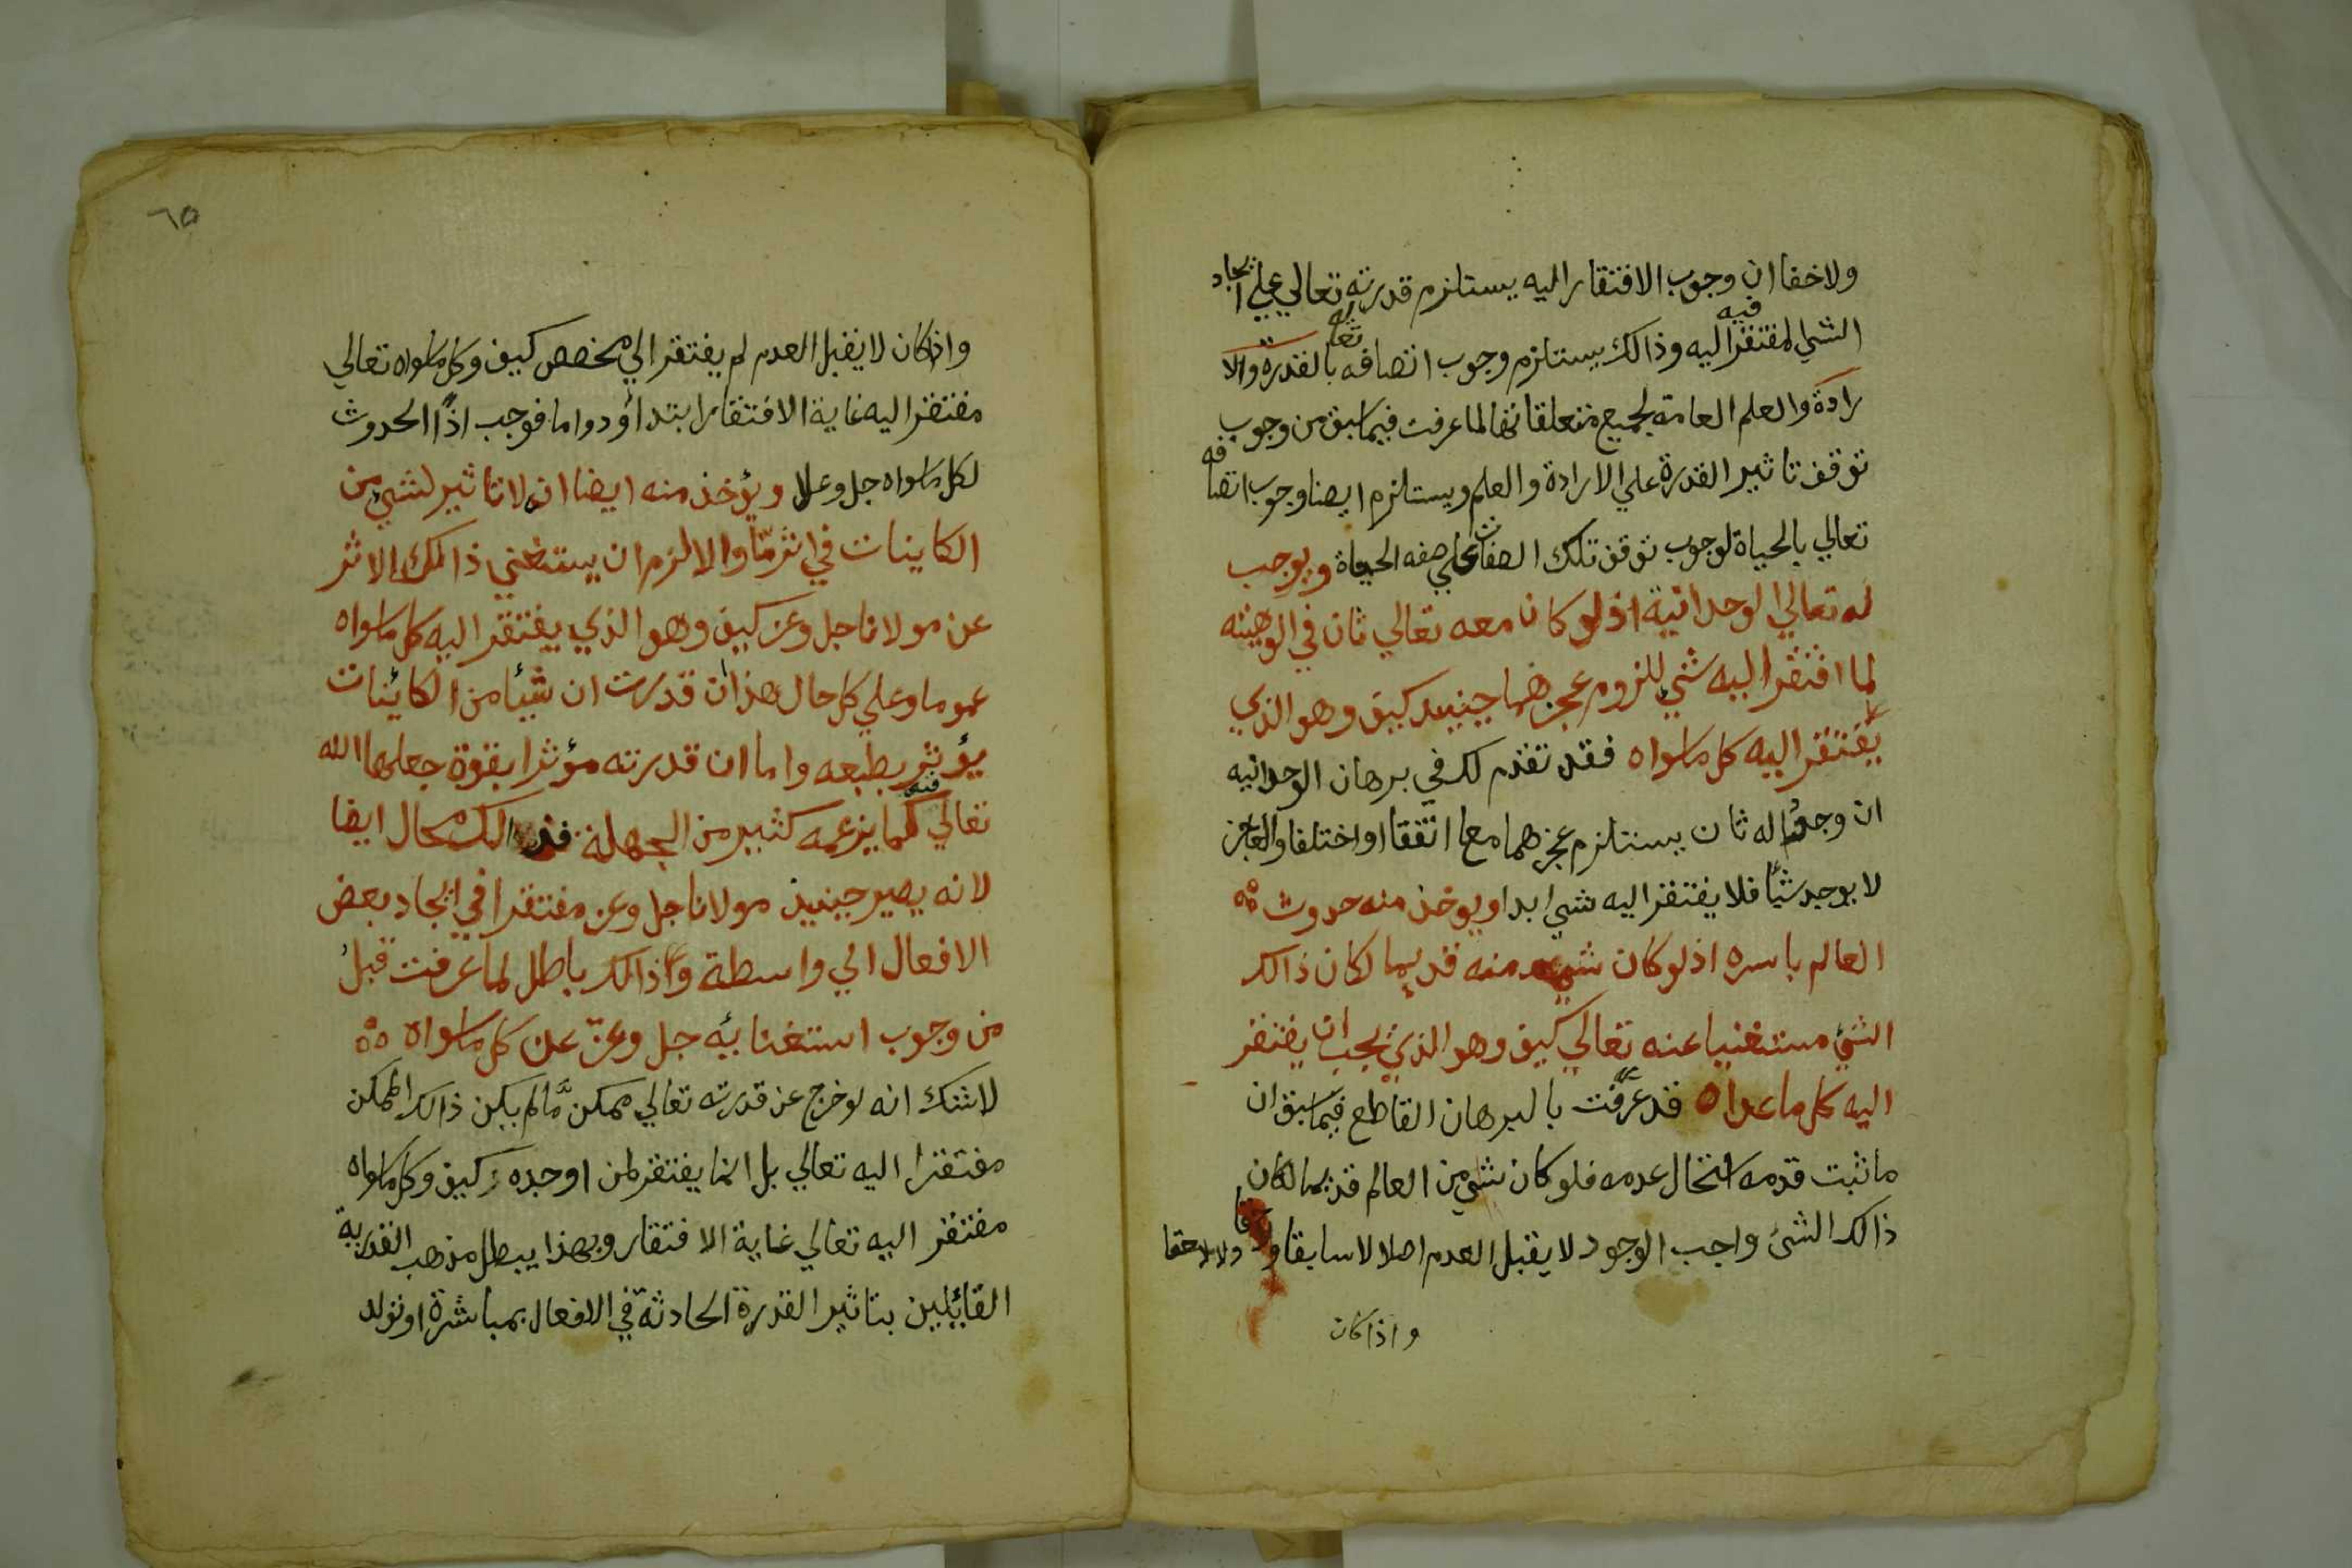 ولاخفا ان وجوب الافتقار اليه يستلزم قدرته تعالي علي ايجاد
الشي المفتقر فيه اليه وذالك يستلزم وجوب اتصافه تعالي بالقدرة والا
رادة والعلم العامة لجميع متعلقاتها لما عرفت فيما سبق من وجوب
توقف تاثير القدرة علي الارادة والعلم ويستلزم ايضا وجوب اتصافه
تعالي بالحياة لوجوب توقف تلك الصفات علي صفه الحياة ويوجب
له تعالي الوحدانية اذ لو كان معه تعالي ثان في الوهيته
لما افتقر اليه شي للزوم عجزهما حينيد كيف وهو الذي
يفتقر اليه كل ماسواه فقد تقدم لك في برهان الوحدانيه
ان وجود اله ثان يستلزم عجزهما معا اتفقا او اختلفا والعاجز
لا يوجد شيأ فلا يفتقر اليه شي ابدا ويوخذ منه حدوث
العالم باسره اذ لو كان شي منه قديما لكان ذالك
الشئ مستغنيا عنه تعالي كيف وهو الذي يجب ان يفتقر
اليه كل ما عداه قد عرفت بالبرهان القاطع فيما سبق ان
ماثبت قدمه استحال عدمه فلو كان شي من العالم قديما لكان
ذالك الشئ واجب الوجود لا يقبل العدم اصلا لا سابقا ولا لاحقا
واذا كان
٦٥
واذا كان لا يقبل العدم لم يفتقر الي مخصص كيف وكل ماسواه تعالي
مفتقر اليه غاية الافتقار ابتدأ ودواما فوجب اذًا الحدوث
لكل ماسواه جل وعلا ويؤخذ منه ايضا ان لا تاثير لشي من
الكاينات في اثر مّا والا لزم ان يستغني ذالك الاثر
عن مولانا جل وعز كيف وهو الذي يفتقر اليه كل ماسواه
عموما وعلي كل حال هذا ان قدرت ان شيأ من الكائنات
يؤثر بطبعه واما ان قدرته مؤثرا بقوة جعلها الله
تعالي فيه كما يزعمه كثير من الجهلة فذالك محال ايضا
لانه يصير حينيذ مولانا جل وعز مفتقرا في ايجاد بعض
الافعال الي واسطة وذالك باطل لما عرفت قبل
من وجوب استغنايه جل وعز عن كل ماسواه
لاشك انه لو خرج عن قدرته تعالي ممكن مّا لم يكن ذالك الممكن
مفتقرا اليه تعالي بل انما يفتقر لمن اوجده كيف وكل ماسواه
مفتقر اليه تعالي غاية الافتقار وبهذا يبطل مذهب القدرية
القائيلين بتاثير القدرة الحادثة في الافعال بمباشرة او تولد